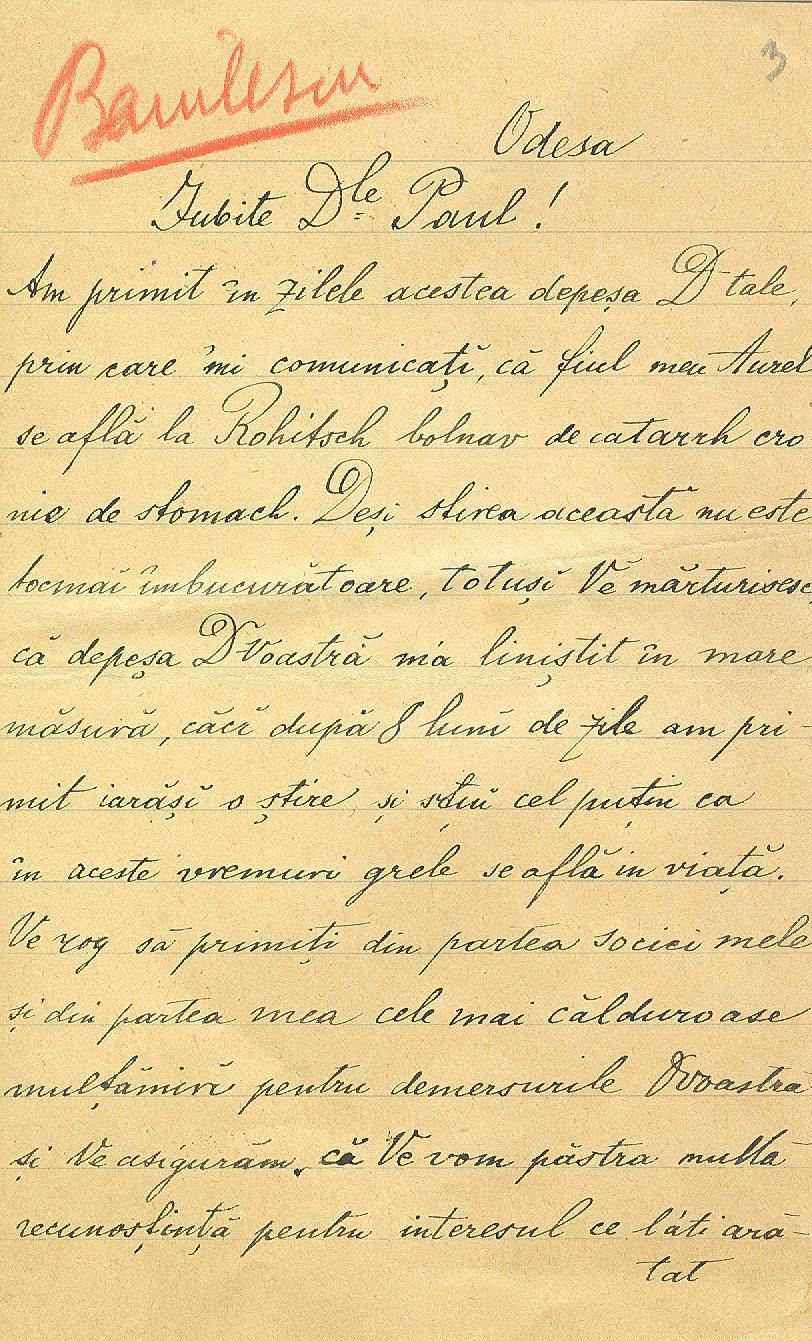 3
Odesa
Iubite Dle Paul!
Am primit în zilele acestea depeșa D-tale,
prin care 'mi comunicați, că fiul meu Aurel
se află la Rohitsch bolnav de catarrh cro
nic de stomach. Deși stirea această nu este
tocmai îmbucurătoare, totuși Vĕ mărturisesc
că depeșa D-Voastră m'a liniștit în mare
măsură, căcĭ după 8 lunĭ de zile am pri-
mit iarășĭ o știre, și știŭ cel puțin ca
în aceste vremuri grele se află in viață.
Ve rog să primiți din partea sociei mele
și din partea mea cele mai călduroase
mulțămirĭ pentru demersurile Dvoastră
și Ve asigurăm, că Ve vom păstra multă
recunoștință pentru interesul ce l'ati ară-
tat